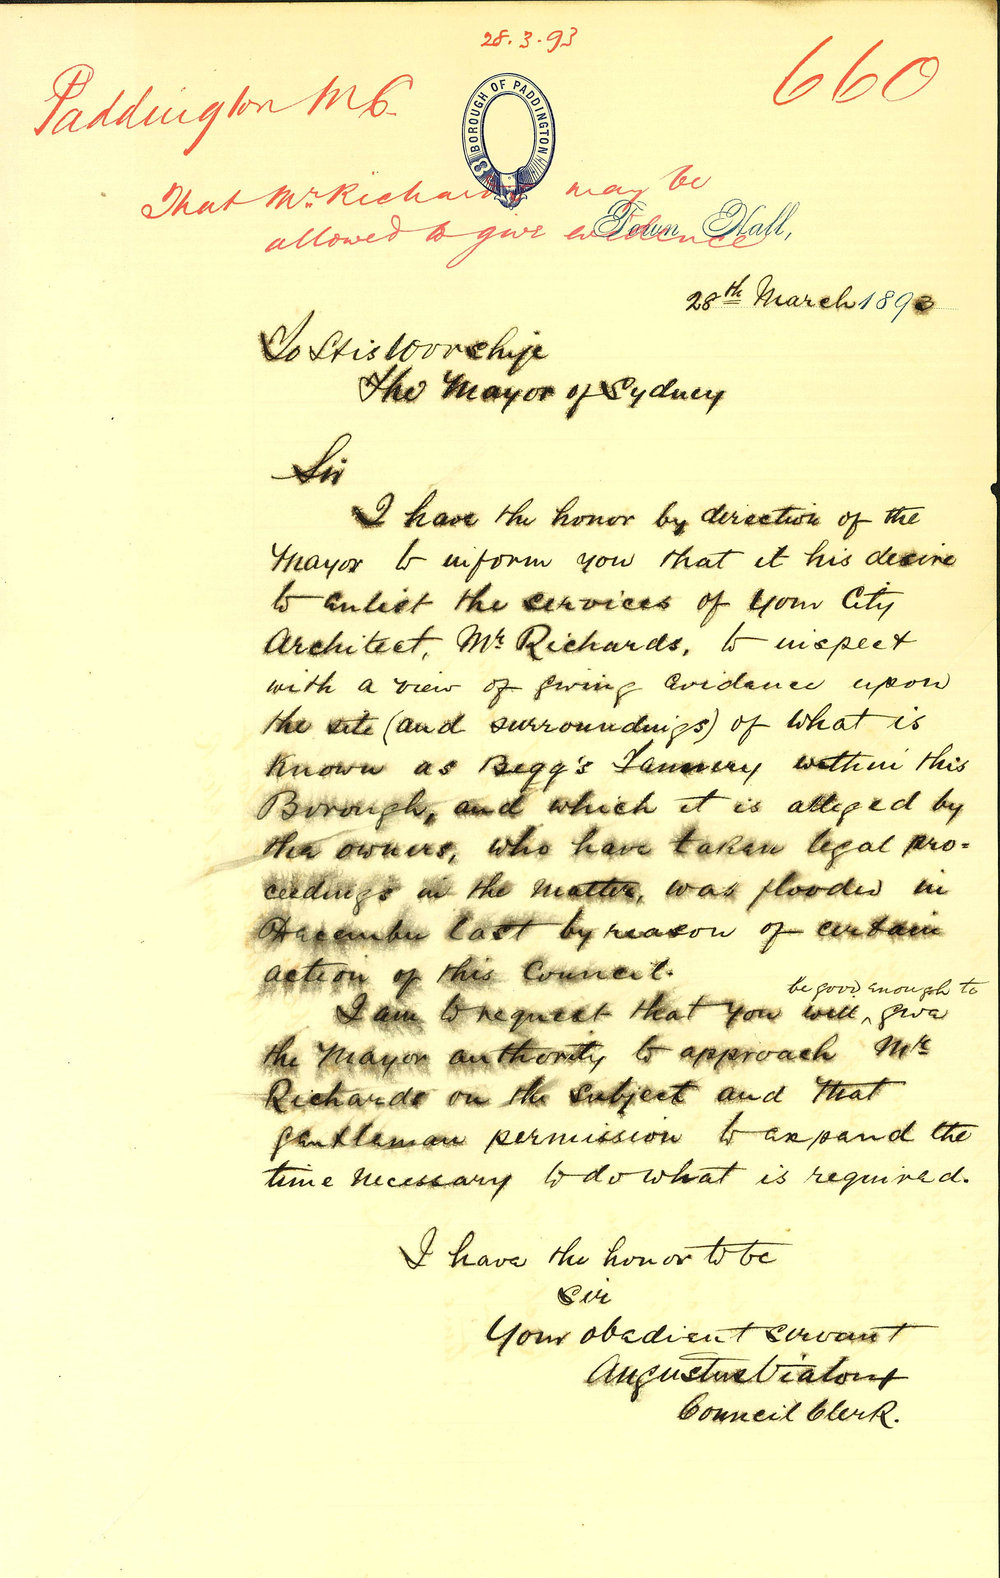 28.3.93
660
Paddington M C.
BOROUGH OF PADDINGTON
That Mr. Richards may be
allowed to give evidence
Town Hall,
28th March 1893
To His Worship
The Mayor of Sydney
Sir
I have the honor by direction of the
Mayor to inform you that it his desire
to enlist the services of your City
Architect, Mr Richards, to inspect
with a view of giving evidence upon
the site (and surroundings) of what is
known as Begg's Tannery within this
Borough, and which it is alleged by
the owners, who have taken legal pro=
ceedings in the matter, was flooded in
December last by reason of certain
action of this Council.
be good enough to
I am to request that you will, ^ give
the Mayor authority to approach Mr
Richards on the subject and that
gentleman permission to expend the
time necessary to do what is required.
I have the honor to be
Sir
Your obedient servant
Augustus
Council Clerk.